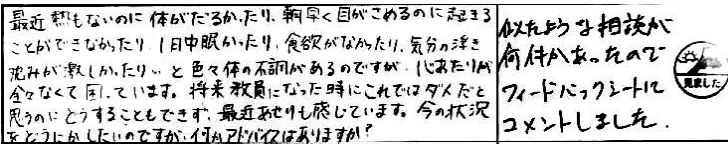 最近熱もないのに体がだるかったり、朝早く目がさめるのに起きる
ことができなかったり、1日中眠かったり、食欲がなかったり、気分の浮き
沈みが激しかったり…と色々体の不調があるのですが、心あたりが
全々なくて困しています。将来教員になった時にこれではダメだと
思うのにどうすることもできず、最近あせりも感じています。今の状況
をどうにかしたいのですが、何かアドバイスはありますか?
似たような相談が
何件かあったので
フィードバックシートに
コメントしました。
見ました